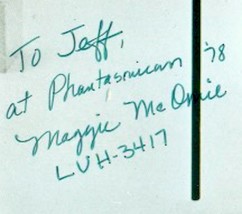 To Jeff,
at Phantasmicon '78
Maggie McOmie
LUH-3417